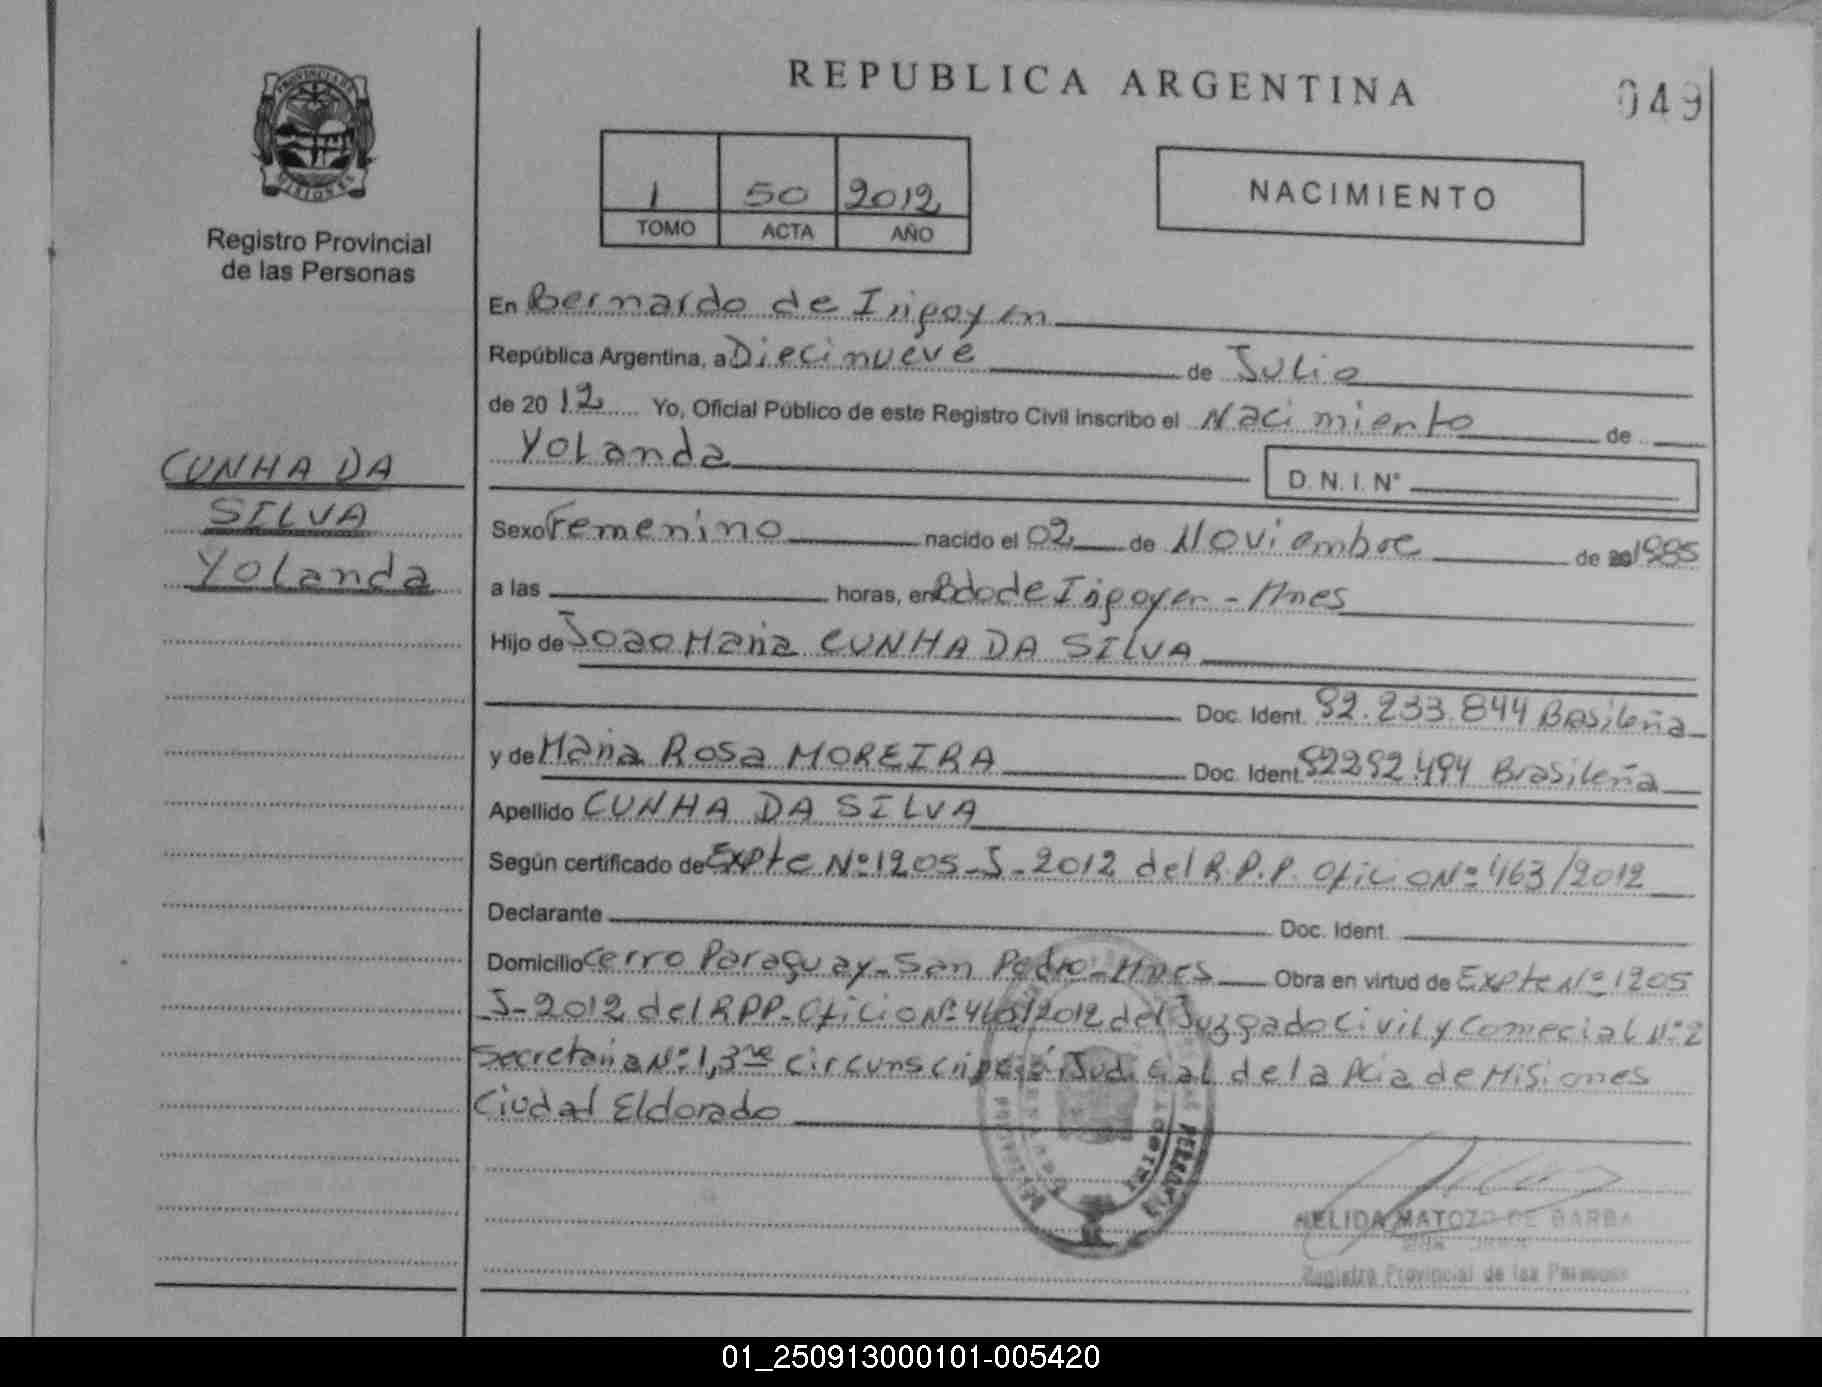 REPUBLICA ARGENTINA
049
PROVINCIA DE
MISIONES
Registro Provincial
de las Personas
1 50 2012
TOMO ACTA AÑO
NACIMIENTO
En Bernardo de Irigoyen
República Argentina, a Diecinueve de Julio
de 2012 Yo, Oficial Público de este Registro Civil inscribo el Nacimiento de
Yolanda D. N. I. N°
CUNHA DA
SILVA
Yolanda
Sexo Femenino nacido el 02 de Noviembre de 20 1985
a las horas, en Bdo de Irigoyen - Mnes
Hijo de Joao Maria CUNHA DA SILVA
Doc. Ident. 92.233.844 Brasileña
y de Maria Rosa MOREIRA Doc. Ident. 92292.494 Brasileña
Apellido CUNHA DA SILVA
Según certificado de Expte Nº 1205-J-2012 del R.P.P. Oficio Nº 463/2012
Declarante Doc. Ident.
Domicilio Cerro Paraguay - San Pedro - Mnes Obra en virtud de Expte Nº 1205
J-2012 del RPP. Oficio Nº 463/2012 del Juzgado Civil y Comecial Nº 2
Secretaria Nº 1, 3ra circunscripció Judicial de la Pcia de Misiones
Ciudad Eldorado
NELIDA MATOZO DE BARBA
Registro Provincial de las Personas
01_250913000101-005420